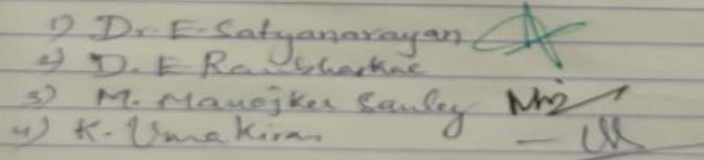 1) Dr. E. Satyanarayan
2) D. E Ravibhaskar
3) M. Manojker
4) K. Uma Kiran